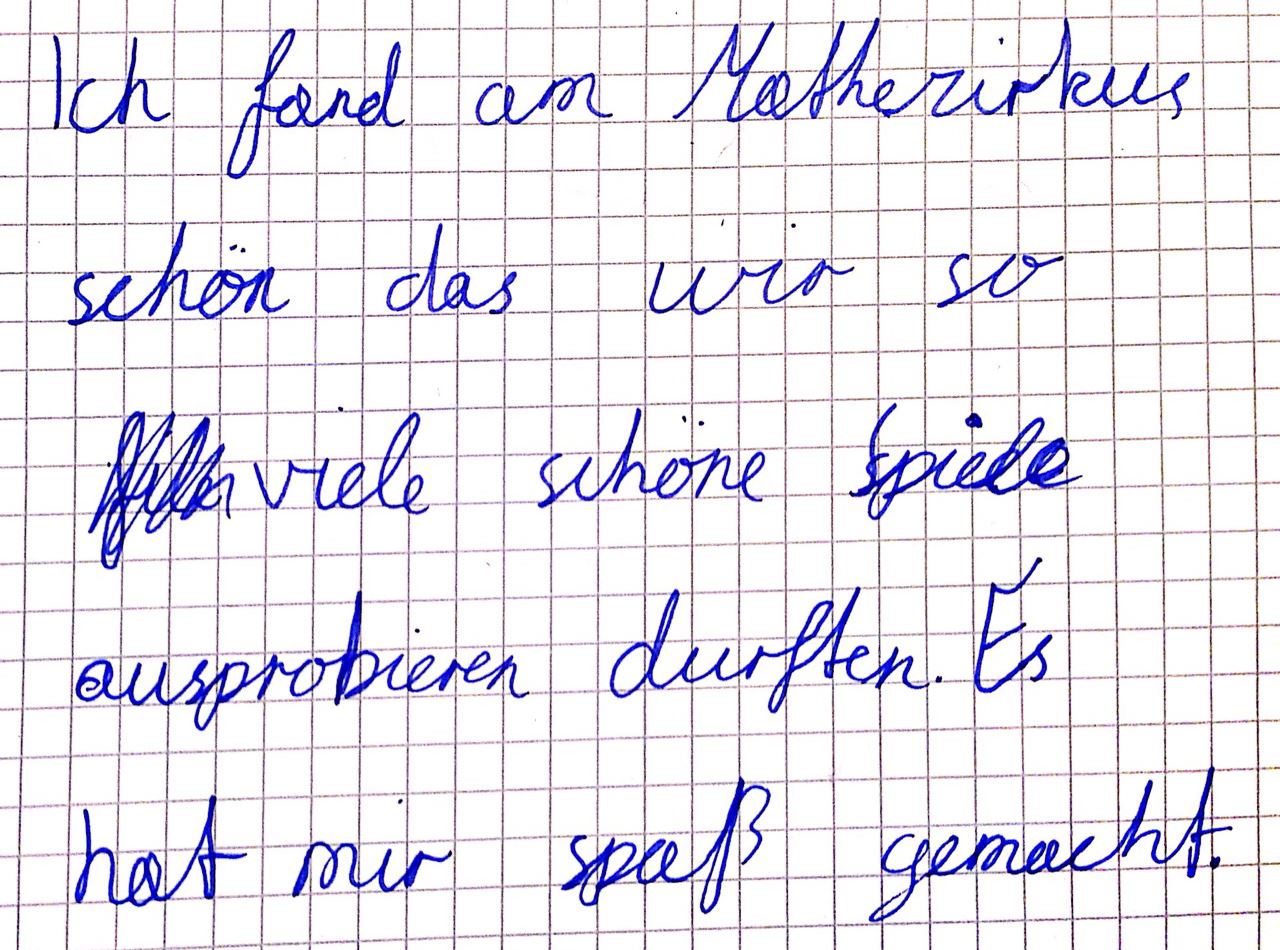 Ich fand am Mathezirkus
schön das wir so
viele schöne Spiele
ausprobieren durften. Es
hat mir spaß gemacht.